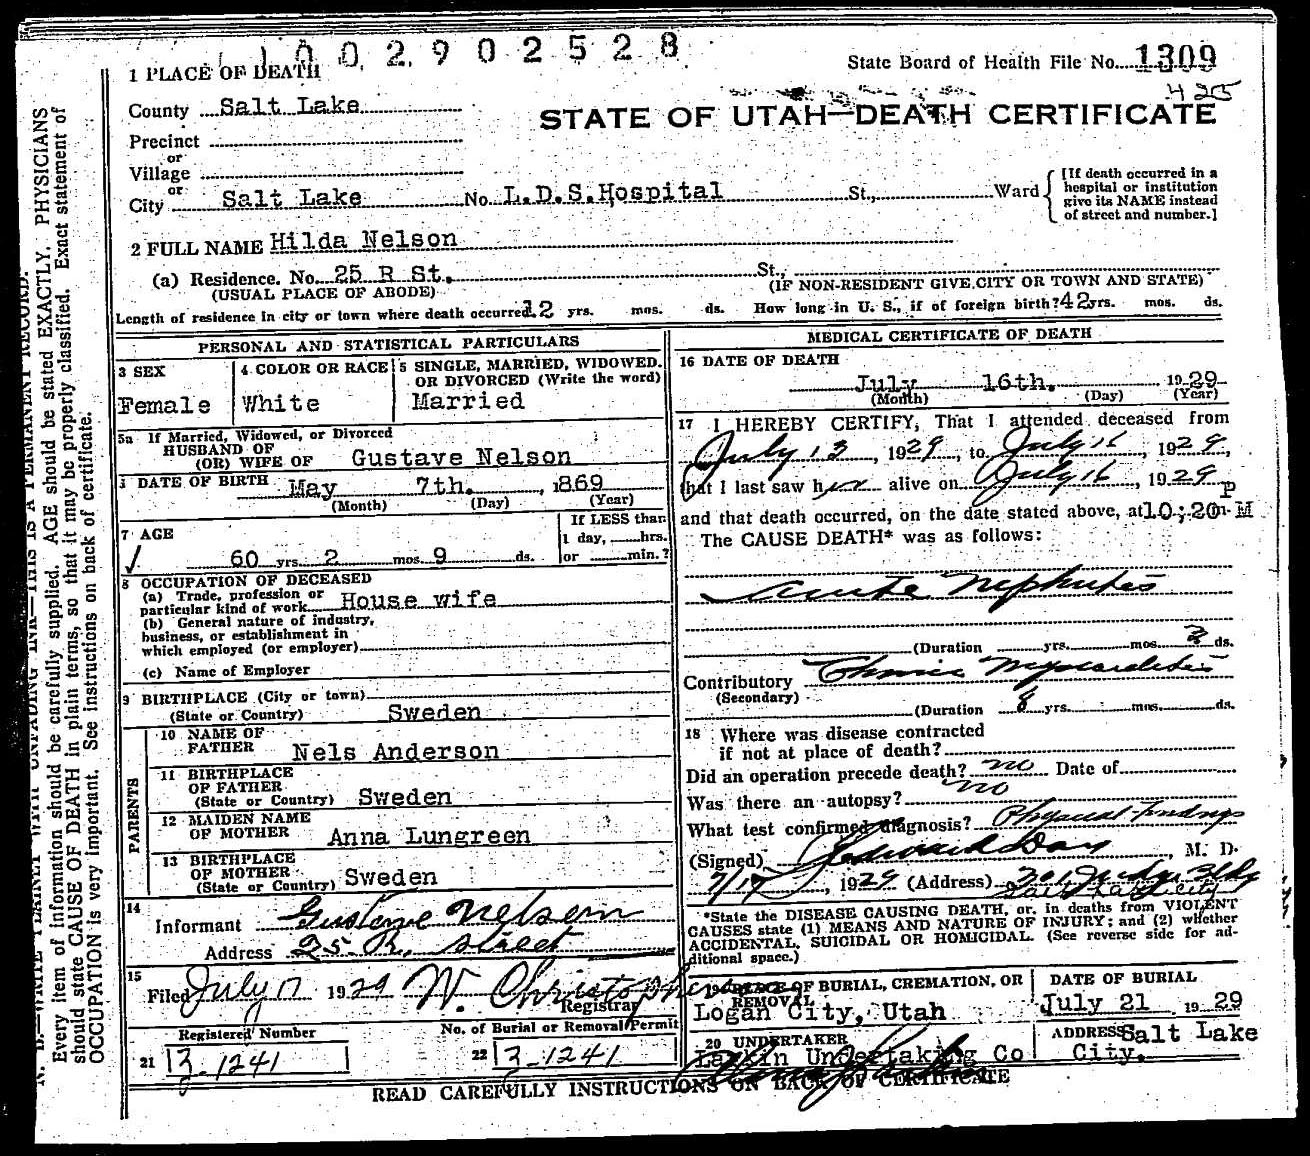 1002902528
State Board of Health File No. 1309
425
1 PLACE OF DEATH
County Salt Lake
STATE OF UTAH—DEATH CERTIFICATE
Precinct
or
Village
or
City Salt Lake No. L.D.S. Hospital St., Ward
[If death occurred in a
hospital or institution
give its NAME instead
of street and number.]
2 FULL NAME Hilda Nelson
(a) Residence. No. 25 R St. St.,
(USUAL PLACE OF ABODE) (IF NON-RESIDENT GIVE CITY OR TOWN AND STATE)
Length of residence in city or town where death occurred 12 yrs. mos. ds. How long in U. S., if of foreign birth? 42 yrs. mos. ds.
PERSONAL AND STATISTICAL PARTICULARS
3 SEX
Female
4 COLOR OR RACE
White
5 SINGLE, MARRIED, WIDOWED,
OR DIVORCED (Write the word)
Married
5a If Married, Widowed, or Divorced
HUSBAND OF
(OR) WIFE OF Gustave Nelson
DATE OF BIRTH May 7th. , 1869
(Month) (Day) (Year)
7 AGE
60 yrs. 2 mos. 9 ds.
If LESS than
1 day, hrs.
or min.?
8 OCCUPATION OF DECEASED
(a) Trade, profession or
particular kind of work House wife
(b) General nature of industry,
business, or establishment in
which employed (or employer)
(c) Name of Employer
9 BIRTHPLACE (City or town)
(State or Country) Sweden
PARENTS
10 NAME OF
FATHER Nels Anderson
11 BIRTHPLACE
OF FATHER
(State or Country) Sweden
12 MAIDEN NAME
OF MOTHER Anna Lungreen
13 BIRTHPLACE
OF MOTHER
(State or Country) Sweden
14
Informant Gustave Nelson
Address 25 R. Street
15
Filed July 17 1929 W. Christopherson
Registrar
Registered Number
21 3-1241
No. of Burial or Removal Permit
22 3-1241
MEDICAL CERTIFICATE OF DEATH
16 DATE OF DEATH
July 16th. 1929
(Month) (Day) (Year)
17 I HEREBY CERTIFY, That I attended deceased from
July 13, 1929, to July 16, 1929,
that I last saw her alive on July 16, 1929
and that death occurred, on the date stated above, at 10;20 P M
The CAUSE DEATH* was as follows:
Acute Nephritis
(Duration yrs. mos. 3 ds.
Contributory Chronic Myocarditis
(Secondary)
(Duration 8 yrs. mos. ds.
18 Where was disease contracted
if not at place of death?
Did an operation precede death? no Date of
Was there an autopsy? no
What test confirmed diagnosis? Physical Findings
(Signed) Edward Day, M. D.
7/17, 1929 (Address) 301 Judge Bldg
Salt Lake City
*State the DISEASE CAUSING DEATH, or, in deaths from VIOLENT
CAUSES state (1) MEANS AND NATURE OF INJURY; and (2) whether
ACCIDENTAL, SUICIDAL OR HOMICIDAL. (See reverse side for ad-
ditional space.)
19 PLACE OF BURIAL, CREMATION, OR
REMOVAL
Logan City, Utah
DATE OF BURIAL
July 21 1929
20 UNDERTAKER
Larkin Undertaking Co
ADDRESS Salt Lake
City.
READ CAREFULLY INSTRUCTIONS ON BACK OF CERTIFICATE
N. B.—WRITE PLAINLY WITH UNFADING INK—THIS IS A PERMANENT RECORD.
Every item of information should be carefully supplied. AGE should be stated EXACTLY. PHYSICIANS
should state CAUSE OF DEATH in plain terms, so that it may be properly classified. Exact statement of
OCCUPATION is very important. See instructions on back of certificate.